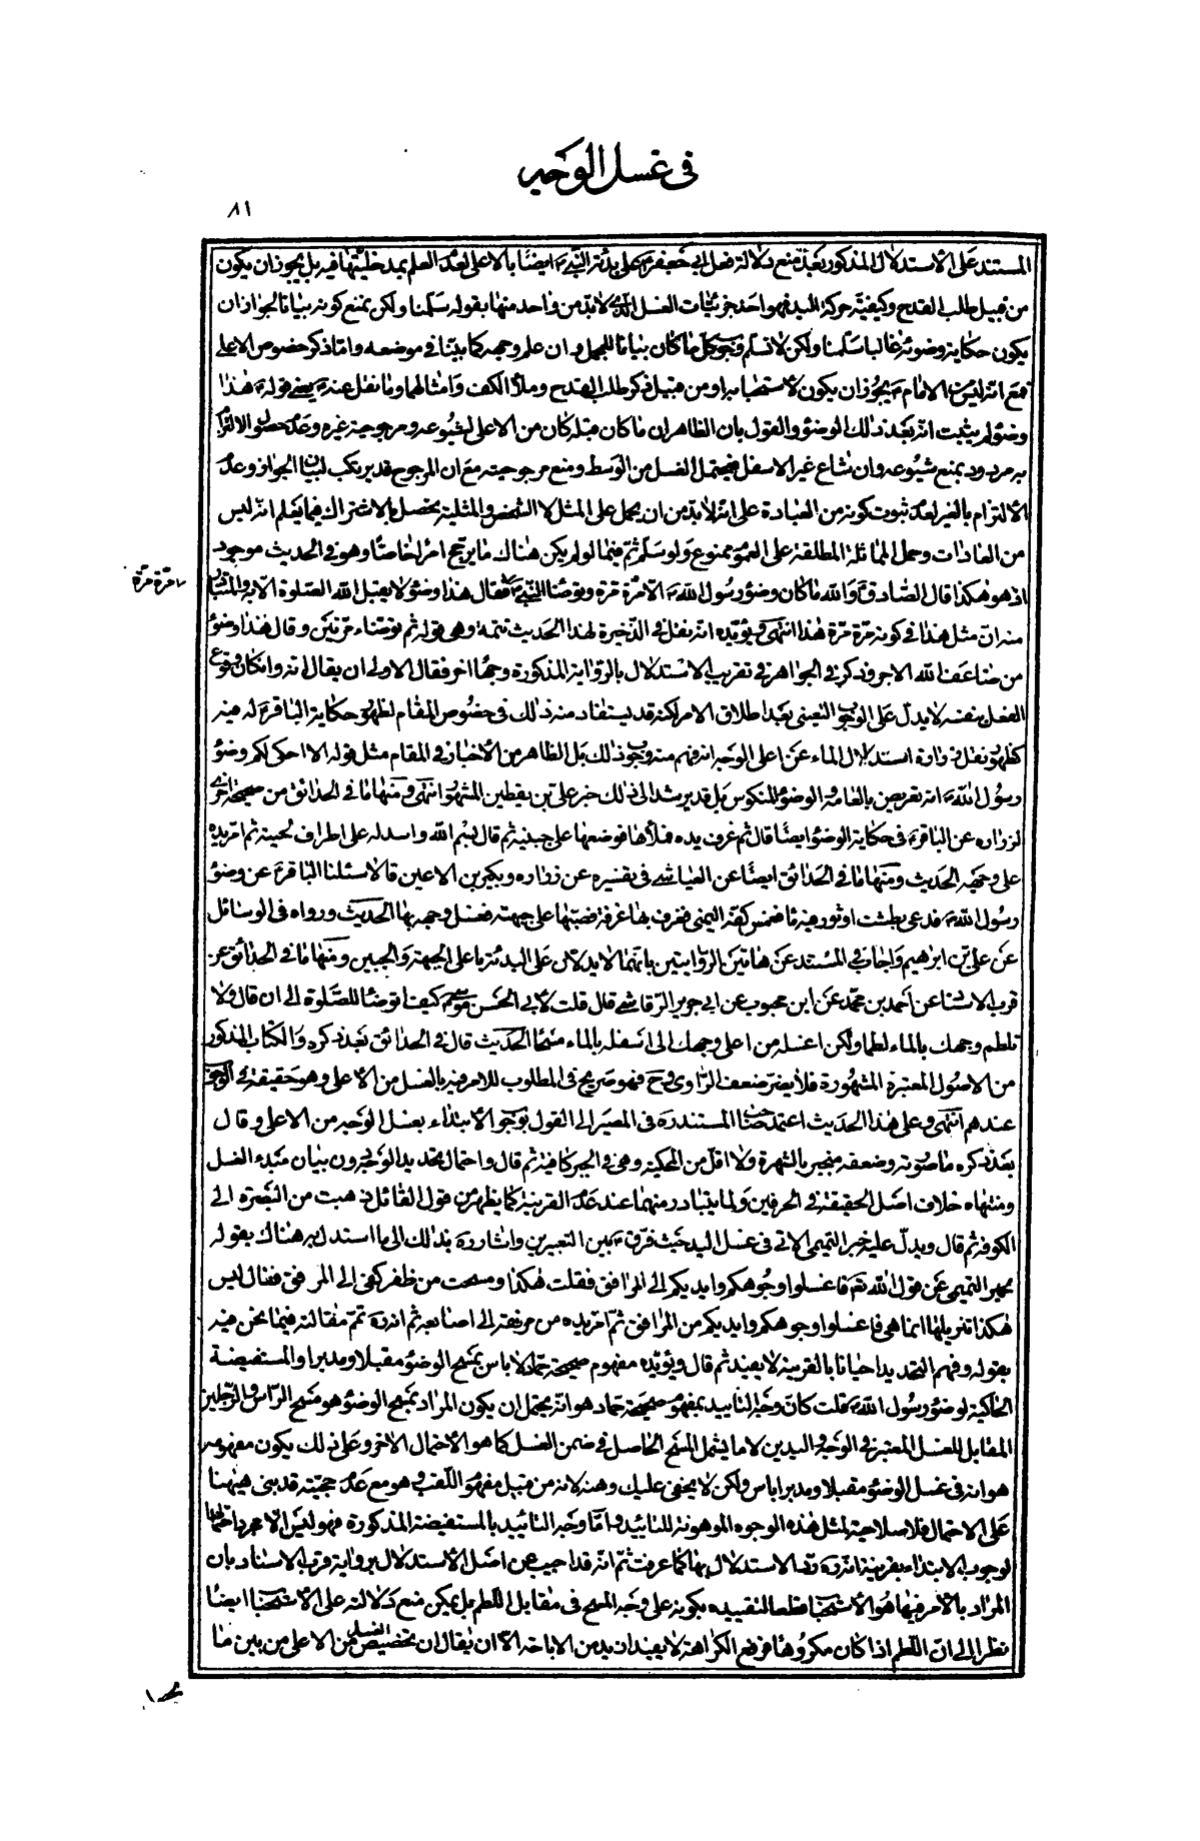 فى غسل الوجه
٨١
المستند على الاستدلال المذكور بعد منع دلالة فعل ابى جعفر ع على بدئة النبى ص ايضا بالاعلى لعدم العلم بمدخليتها فيه بل يجوز ان يكون
من قبيل طلب القدح وكيفية حركة اليد فهو احد جزئيات الغسل الذى لابد من واحد منها بقوله سلمنا ولكن نمنع كونه بيانا لجواز ان
يكون حكاية وضوئه غالبا سلمنا ولكن لا نسلم وجوب كل ما كان بيانا للمجمل وان علم وجهه كما بيّنا فى موضعه وامّا ذكر خصوص الاعلى
فمع انه ليس من الامام ع يجوز ان يكون لاستحبابه او من قبيل ذكر طلب القدح وملأ الكف وامثالهما وما نقل عنه ص يعنى قوله ص هذا
وضوء لم يثبت انه بعد ذلك الوضوء والقول بان الظاهر ان ما كان قبله كان من الاعلى لشيوعه ومرجوحية غيره وعدم حصول الالتزام
به مردود بمنع شيوعه وان شاع غير الاسفل فيحتمل الغسل من الوسط ومنع مرجوحيته مع ان المرجوح قد يرتكب لبيان الجواز وعدم
الالتزام بالغير لعدم ثبوت كونه من العبادة على انه لابد من ان يحمل على المثل لا الشخص والمثلية يحصل بالاشتراك فيما يعلم انه ليس
من العادات وحمل المماثلة المطلقة على العموم ممنوع ولو سلم ثم فيما لو لم يكن هناك ما يرجح امرا خاصا وهو فى الحديث موجود
اذ هو هكذا قال الصادق ع والله ما كان وضوء رسول الله ص الا مرّة مرّة وتوضأ النبى ص فقال هذا وضوء لا يقبل الله الصلوة الا به والمتبادر
مرّة مرّة
منه ان مثل هذا فى كونه مرّة مرّة هذا انتهى ويؤيّده انه نقل فى الذخيرة لهذا الحديث تتمة وهى قوله ثم توضاء مرتين وقال هذا وضوء
من ضاعف الله الاجر وذكر فى الجواهر فى تقريب الاستدلال بالرواية المذكورة وجها اخر فقال الاولى ان يقال انه وان كان وقوع
الفعل بنفسه لا يدل على الوجوب التعيينى بعد اطلاق الامر لكنه قد يستفاد منه ذلك فى خصوص المقام لظهور حكاية الباقر ع له فيه
كظهور نقل زرارة اسدال الماء عن اعلى الوجه انه فهم منه وجوب ذلك بل الظاهر من الاخبار فى المقام مثل قوله الا احكى لكم وضوء
رسول الله ص انه تعريض بالعامة والوضوء المنكوس بل قد يرشد الى ذلك خبر على بن يقطين المشهور انتهى ومنها ما فى الحدائق من صحيحة اخرى
لزرارة عن الباقر ع فى حكاية الوضوء ايضا قال ثم غرف يده فملأها فوضعها على جبينه ثم قال بسم الله واسدله على اطراف لحيته ثم امرّ يده
على وجهه الحديث ومنها ما فى الحدائق ايضا عن العياشى فى تفسيره عن زرارة وبكير بن الاعين قالا سئلنا الباقر ع عن وضوء
رسول الله ص فدعى بطشت او تور فيه ماء فغمس كفه اليمنى فغرف بها غرفة فصبّها على جبهته فغسل وجهه بها الحديث ورواه فى الوسائل
عن على بن ابراهيم واجاب فى المستند عن هاتين الروايتين بانهما لا يدلان على البدئة باعلى الجبهة والجبين ومنها ما فى الحدائق عن
قرب الاسناد عن احمد بن محمد عن ابن محبوب عن ابى جرير الرقاشى قال قلت لابى الحسن موسى ع كيف اتوضأ للصلوة الى ان قال ولا
تلطم وجهك بالماء لطما ولكن اغسله من اعلى وجهك الى اسفله بالماء مسحا الحديث قال فى الحدائق بعد ذكره والكتاب المذكور
من الاصول المعتبرة المشهورة فلا يضر ضعف الراوى وح فهو صريح فى المطلوب للامر فيه بالغسل من الاعلى وهو حقيقة فى الوجوب
عندهم انتهى وعلى هذا الحديث اعتمد صاحب المستند ره فى المصير الى القول بوجوب الابتداء بغسل الوجه من الاعلى وقال
بعد ذكره ما صورته وضعفه منجبر بالشهرة ولا اقل من المحكية وهى فى الجبر كافية ثم قال واحتمال تحديد الوجه دون بيان مبدء الغسل
ومنتهاه خلاف اصل الحقيقة فى الحرفين ولما يتبادر منهما عند عدم القرينة كما يظهر من قول القائل ذهبت من البصرة الى
الكوفة ثم قال ويدل عليه خبر التميمى الاتى فى غسل اليد حيث فرق ع بين التعبيرين واشار ره بذلك الى ما استدل به هناك بقوله
بخبر التميمى عن قول الله تعم فاغسلوا وجوهكم وايديكم الى المرافق فقلت هكذا ومسحت من ظفر كفى الى المرفق فقال ليس
هكذا تنزيلها انما هى فاغسلوا وجوهكم وايديكم من المرافق ثم امرّ يده من مرفقه الى اصابعه ثم انه ره تمم مقالته فيما نحن فيه
بقوله وفهم التحديد احيانا بالقرينة لا يفيد ثم قال ويؤيده مفهوم صحيحة حماد لا باس بمسح الوضوء مقبلا ومدبرا والمستفيضة
الحاكية لوضوء رسول الله ص قلت كان وجه التاييد بمفهوم صحيحة حماد هو انه يحتمل ان يكون المراد بمسح الوضوء هو مسح الراس والرجلين
المقابل للغسل المعتبر فى الوجه واليدين لا ما يشمل المسح الحاصل فى ضمن الغسل كما هو الاحتمال الاخر وعلى ذلك يكون مفهومه
هو انه فى غسل الوضوء مقبلا ومدبرا باس ولكن لا يخفى عليك وهنه لانه من قبيل مفهوم اللقب وهو مع عدم حجيته قد بنى هيهنا
على الاحتمال فلا صلاحية لمثل هذه الوجوه الموهونة للتاييد وامّا وجه التاييد بالمستفيضة المذكورة فهو ليس الا مجرد احتمالها
لوجوب الابتداء بقرينة انه ره رد الاستدلال بها كما عرفت ثم انه قد اجيب عن اصل الاستدلال برواية قرب الاسناد بان
المراد بالامر فيها هو الاستحباب قطعا لتقييده بكونه على وجه المسح فى مقابل اللطم بل يمكن منع دلالته على الاستحباب ايضا
نظرا الى ان اللطم اذا كان مكروها فرفع الكراهة لا يفيد ازيد من الاباحة الا ان يقال ان تخصيص الغسل من الاعلى من بين ما